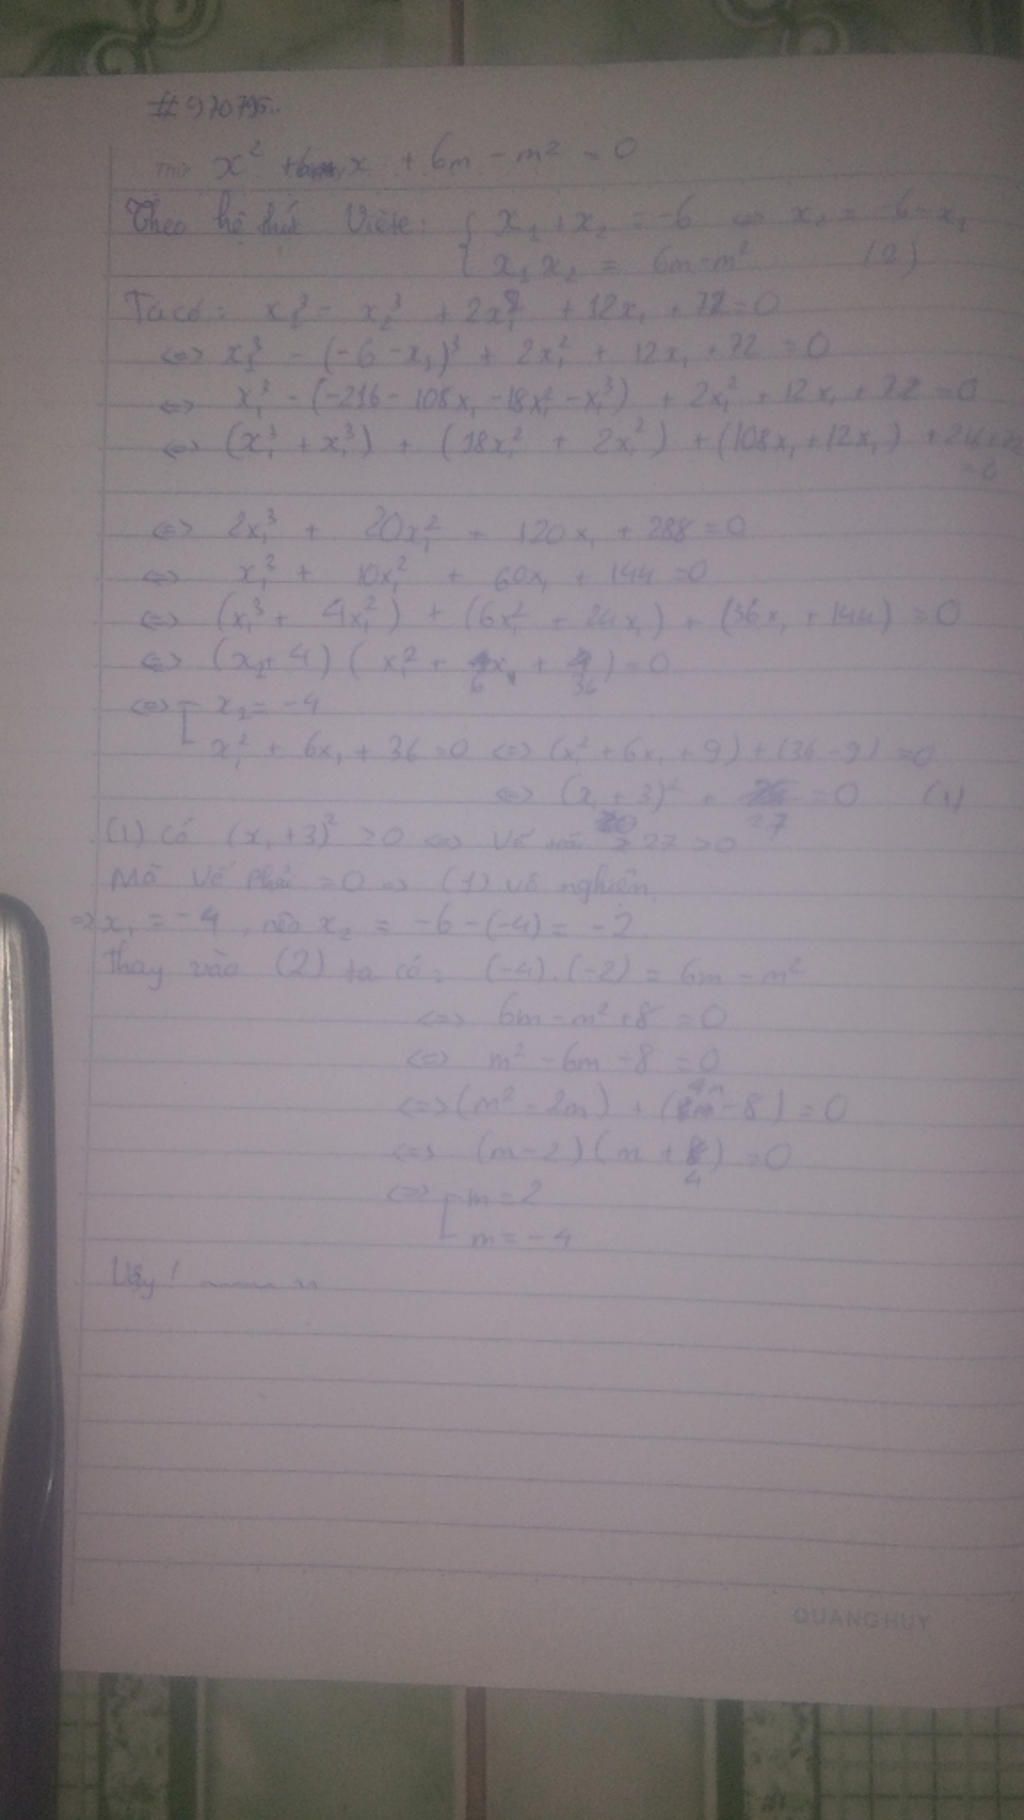 #970795..
Thứ x² + 6x + 6m - m² = 0
Theo hệ thức Viète: { x₁ + x₂ = -6 ⇔ x₂ = -6 - x₁
{ x₁x₂ = 6m - m² (2)
Ta có: x₁³ - x₂³ + 2x₁² + 12x₁ + 72 = 0
⇔ x₁³ - (-6 - x₁)³ + 2x₁² + 12x₁ + 72 = 0
⇔ x₁³ - (-216 - 108x₁ - 18x₁² - x₁³) + 2x₁² + 12x₁ + 72 = 0
⇔ (x₁³ + x₁³) + (18x₁² + 2x₁²) + (108x₁ + 12x₁) + 216 + 72
= 0
⇔ 2x₁³ + 20x₁² + 120x₁ + 288 = 0
⇔ x₁³ + 10x₁² + 60x₁ + 144 = 0
⇔ (x₁³ + 4x₁²) + (6x₁² + 24x₁) + (36x₁ + 144) = 0
⇔ (x₁ + 4)(x₁² + 6x₁ + 36) = 0
⇔ [ x₁ = -4
[ x₁² + 6x₁ + 36 = 0 ⇔ (x₁² + 6x₁ + 9) + (36 - 9) = 0
⇔ (x₁ + 3)² + 27 = 0 (1)
(1) có (x₁ + 3)² ≥ 0 ⇔ Vế trái ≥ 27 > 0
Mà Vế Phải = 0 ⇒ (1) vô nghiệm
⇒ x₁ = -4, nên x₂ = -6 - (-4) = -2
Thay vào (2) ta có: (-4).(-2) = 6m - m²
⇔ 6m - m² + 8 = 0
⇔ m² - 6m - 8 = 0
⇔ (m² - 2m) + (4m - 8) = 0
⇔ (m - 2)(m + 4) = 0
⇔ [ m = 2
[ m = -4
Vậy!
QUANGHUY